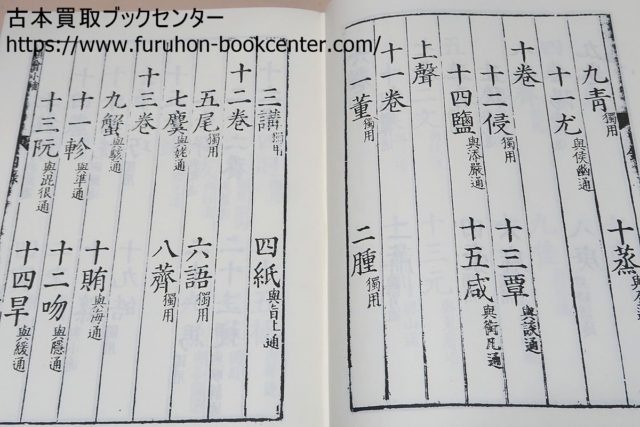 古本買取ブックセンター
https://www.furuhon-bookcenter.com/
九青獨用 十蒸
十一尤與侯幽通
十卷
十二侵獨用 十三覃與談通
十四鹽與添嚴通 十五咸與銜凡通
上聲
十一卷
一董獨用 二腫獨用
三講獨用 四紙與旨止通
十二卷
五尾獨用 六語獨用
七麌與姥通 八薺獨用
十三卷
九蟹與駭通 十賄與海通
十一軫與準通 十二吻與隱通
十三阮與混很通 十四旱與緩通